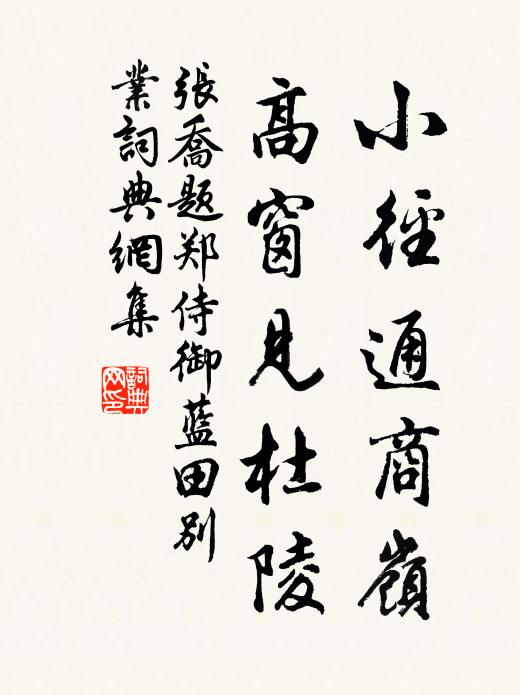 小徑通商嶺
高窗見杜陵
張喬題郑侍御藍田別
業詞典網集
詞典
网印